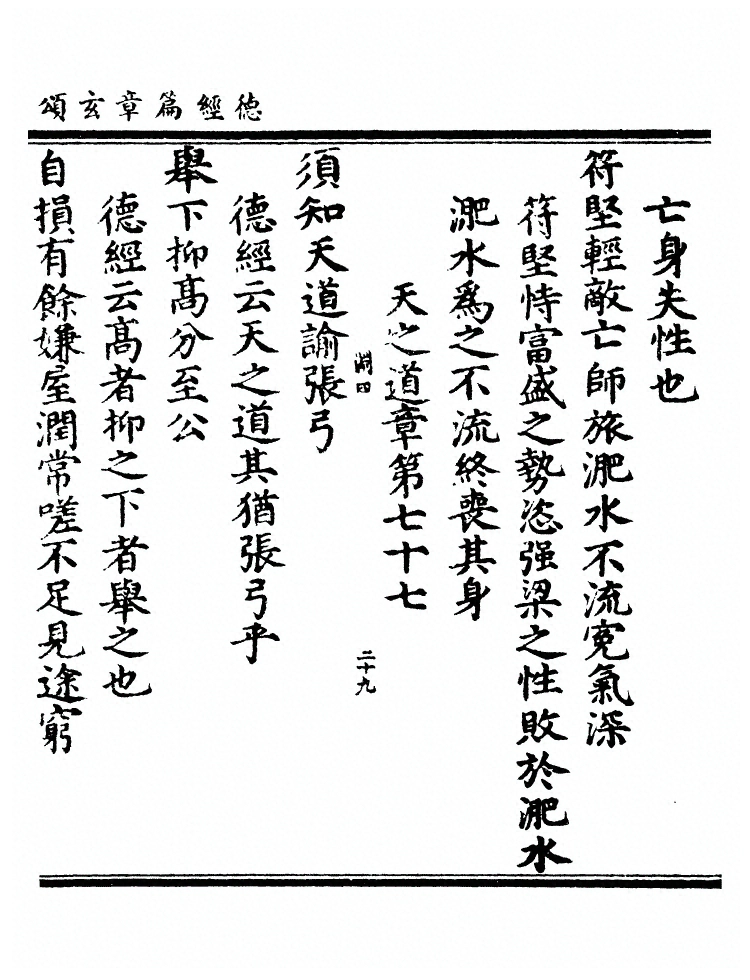 德經篇章玄頌
亡身失性也
符堅輕敵亡師旅淝水不流寃氣深
符堅恃富盛之勢恣强梁之性敗於淝水
淝水爲之不流終喪其身
天之道章第七十七
淵四
二十九
須知天道諭張弓
德經云天之道其猶張弓乎
舉下抑髙分至公
德經云髙者抑之下者舉之也
自損有餘嫌屋潤常嗟不足見途窮